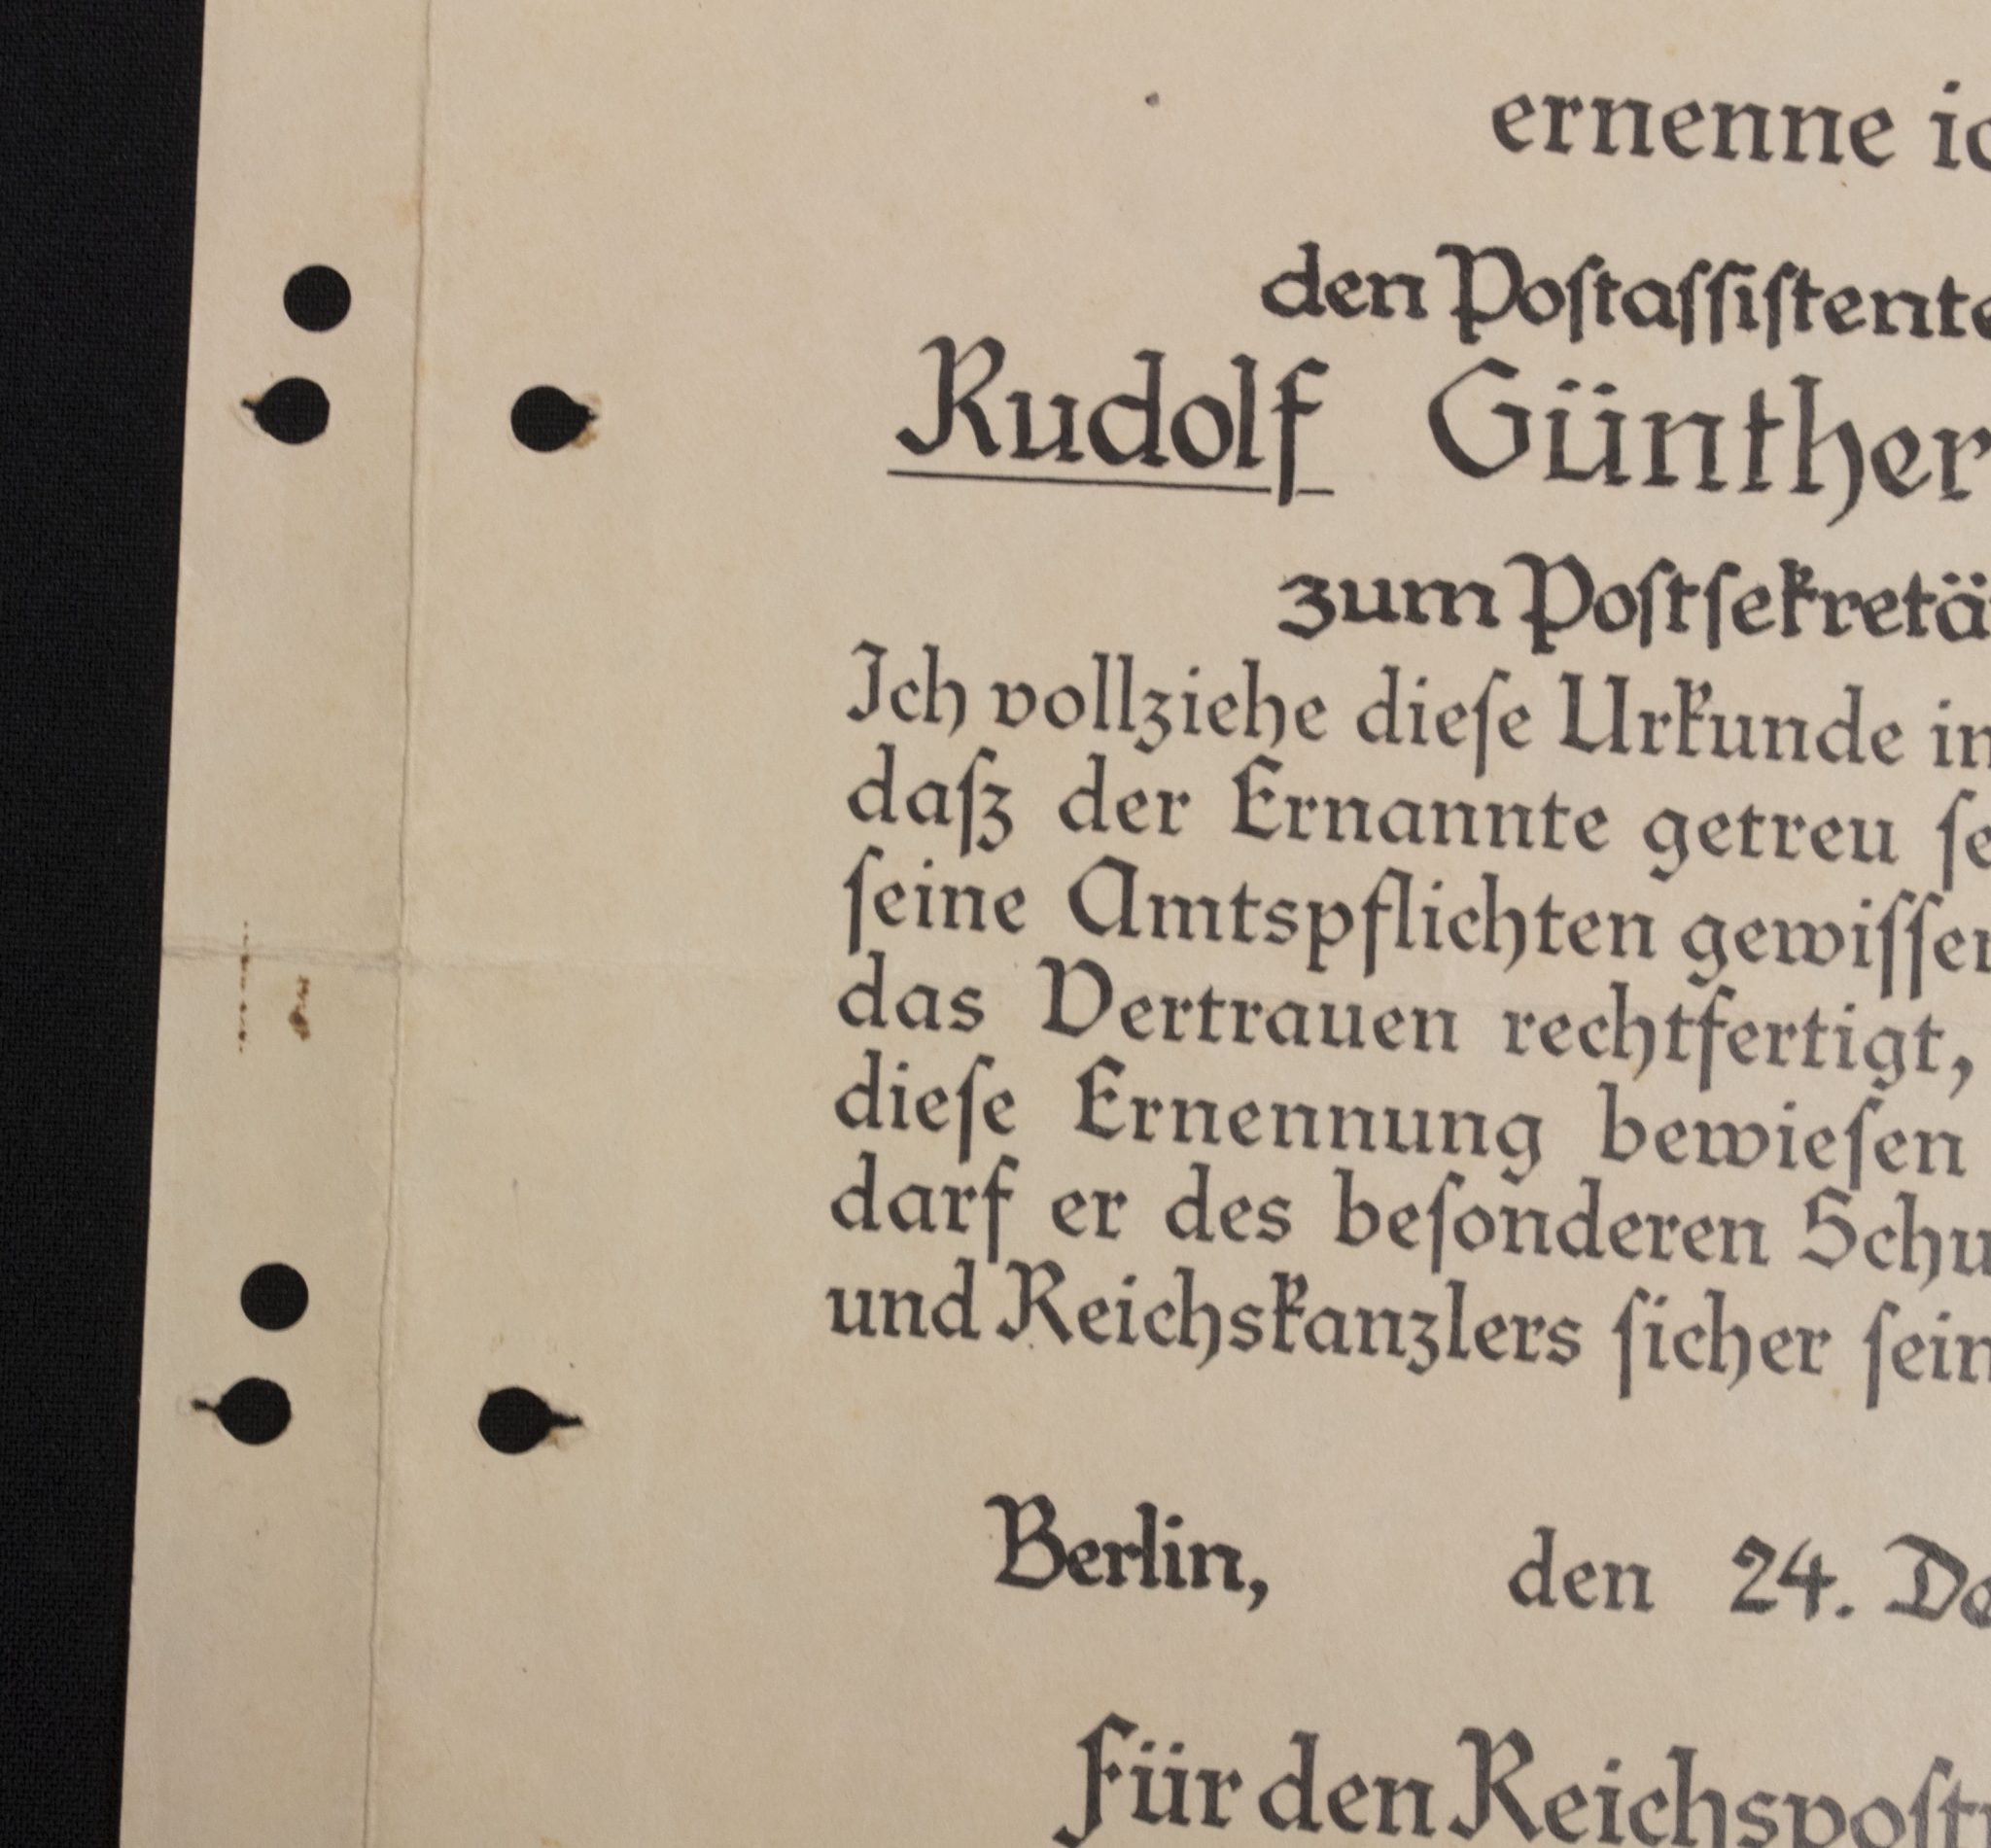 ernenne ic
den Poſtaſſiſtente
Rudolf Günther
zum Poſtſekretä
Ich vollziehe dieſe Urkunde in
daſz der Ernannte getreu ſe
ſeine Amtspflichten gewiſſen
das Vertrauen rechtfertigt,
dieſe Ernennung bewieſen
darf er des beſonderen Schu
und Reichskanzlers ſicher ſein
Berlin, den 24. De
Für den Reichspoſtm